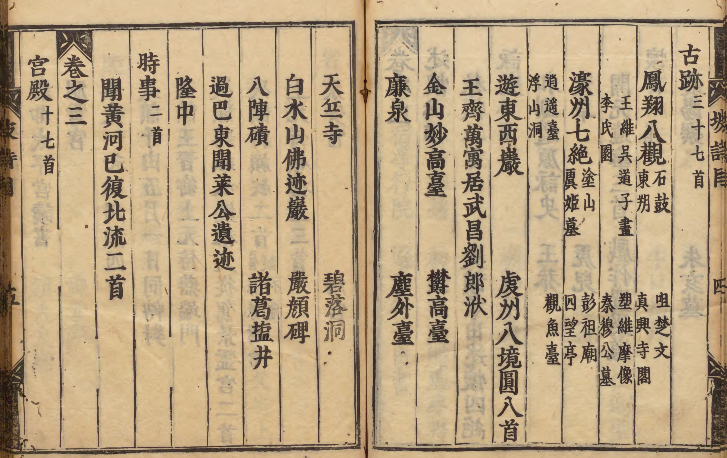 坡詩目 四
古跡 三十七首
鳳翔八觀 石鼓 詛楚文
東湖 真興寺閣
王維吳道子畫 塑維摩像
李氏園 秦穆公墓
濠州七絶 塗山 彭祖廟
虞姬墓 四望亭
逍遥臺 觀魚臺
浮山洞
遊東西巖 虔州八境圖八首
王齊萬寓居武昌劉郎洑
金山妙高臺 欝高臺
廉泉 塵外臺
天竺寺 碧落洞
白水山佛迹巖 嚴顔碑
八陣磧 諸葛塩井
過巴東聞萊公遺迹
隆中
時事 二首
聞黄河已復北流二首
卷之三
宫殿 十七首
五